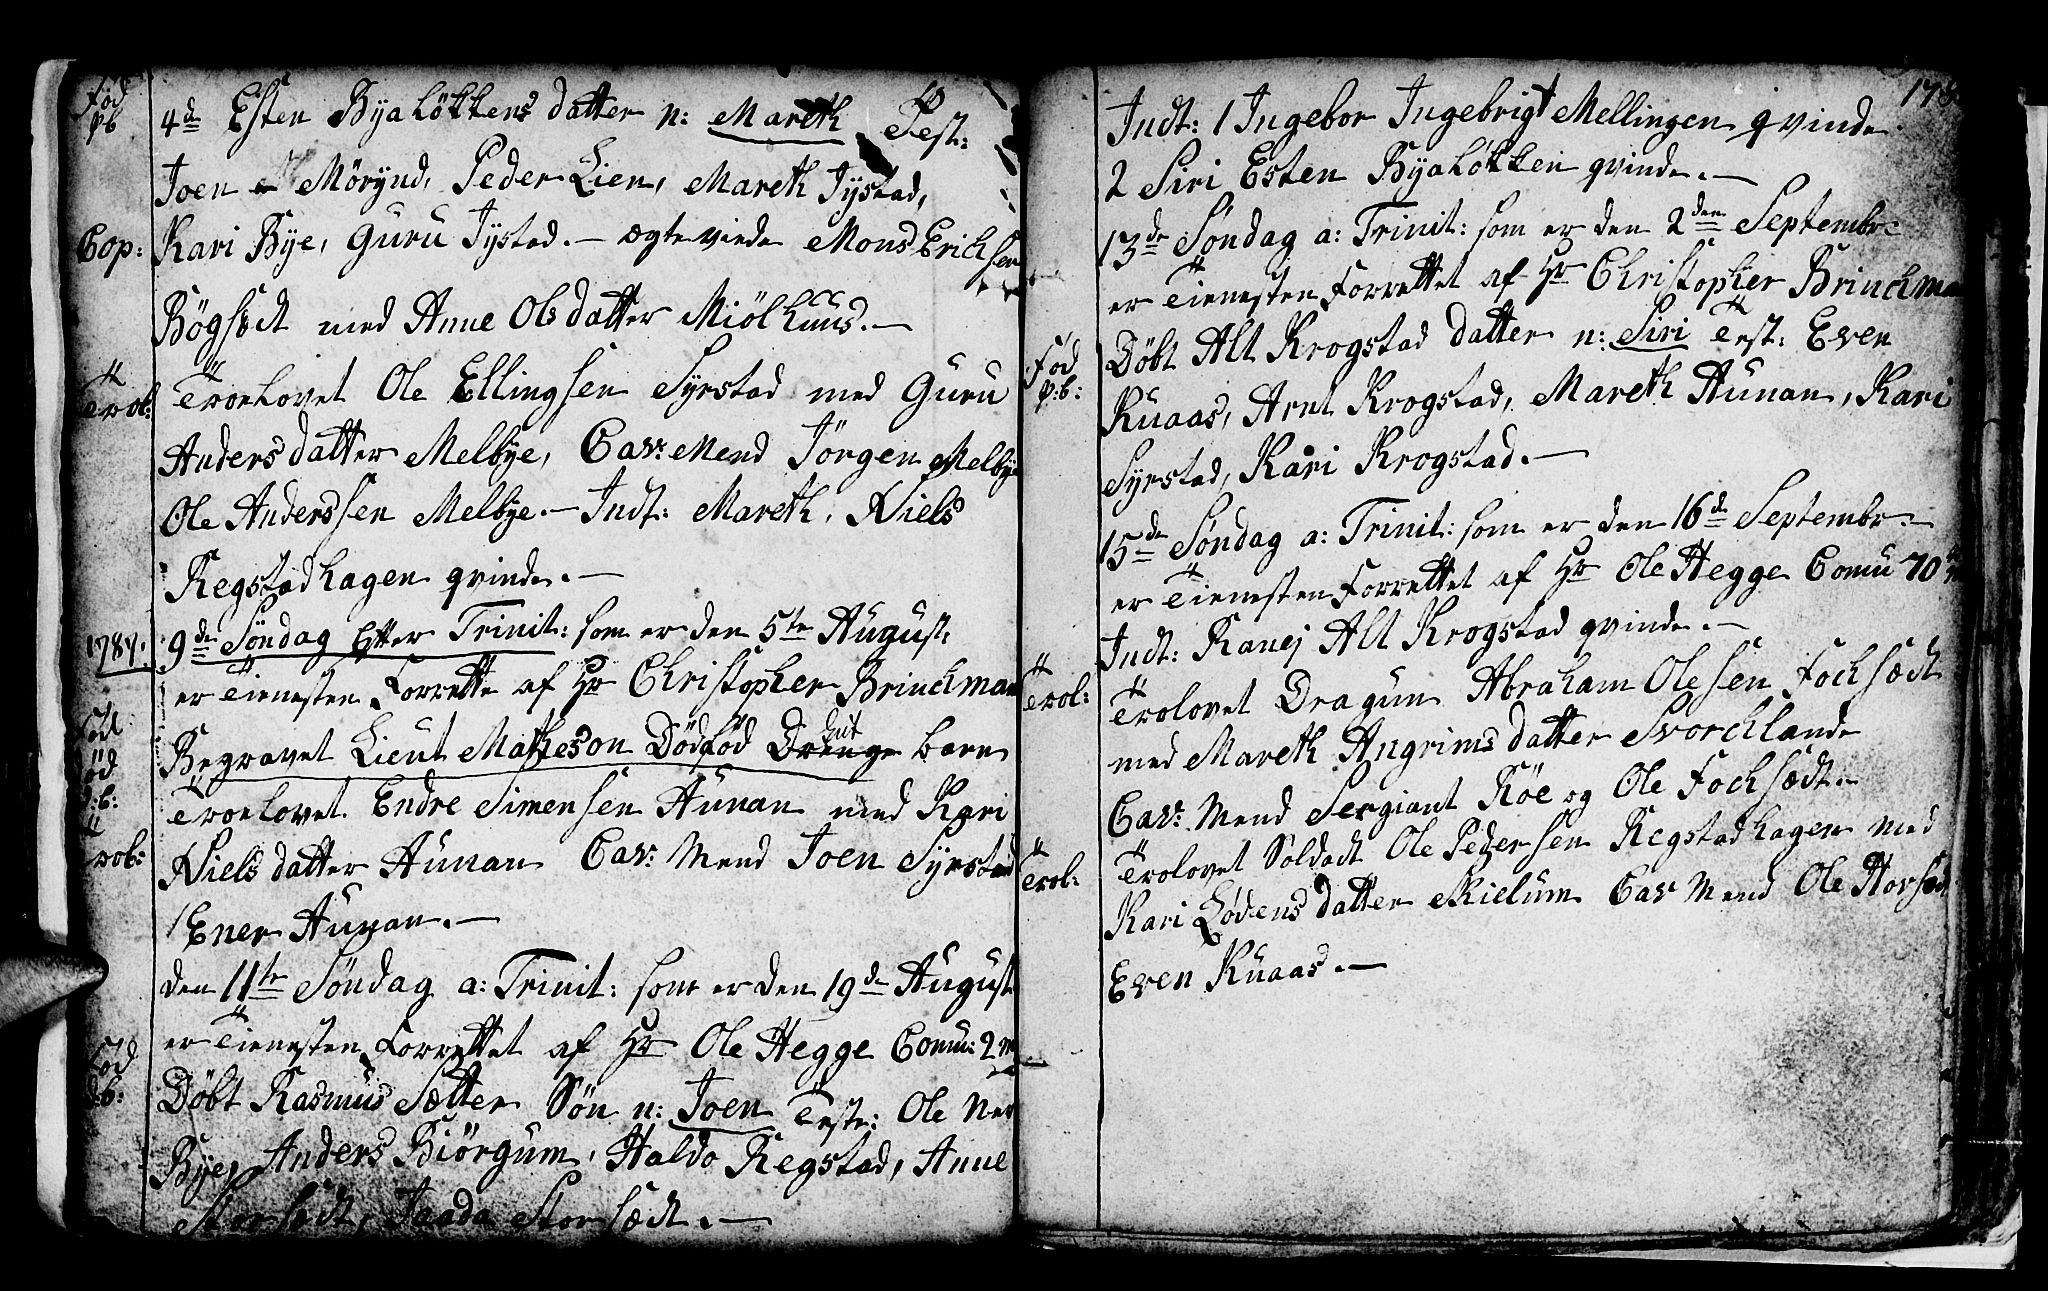 Fød
p b
4de Esten Byaløkkens datter n: Mareth Test:
Joen Mörÿnd, Peder Lien, Mareth Jÿstad,
Cop: Kari Bÿe, Guru Jÿstad.- ægteviede Mons Erichsen
Bögsædt med Anne Olsdatter Miölhuus.-
Trol: Troelovet Ole Ellingsen Syrstad med Guru
Anders datter Melbÿe, Cav: Mend Jörgen Melbÿe
Ole Anderssen Melbÿe.- Indt: Mareth, Niels
Regstadhagen qvinde.-
1787. 9de Søndag Efter Trinit: som er den 5te August
er Tienesten Forrette af Hr Christopher Brinckman
Begravet Lieut Matheson Dödfød Drenge barn
Troelovet Endre Simensen Aunan med Kari
Trol: Niels datter Aunan Cav: Mend Joen Syrstad
Ener Aunan.-
den 11te Søndag a: Trinit: som er den 19de August
er Tienesten Forrettet af Hr Ole Hegge Comu: 2
Fød
Döbt Rasmus Sætter Søn n: Joen Teste: Ole Ner
Bÿe, Anders Biörgum, Haldo Regstad, Anne
Storsædt, Jaada Storsædt.-
178
Indt: 1 Ingebor Ingebrigt Mellingen qvinde.
2 Siri Esten Byaløkken qvinde.-
13de Søndag a: Trinit: som er den 2den Septembr.
er Tienesten Forrettet af Hr Christopher Brinckman
Fød Döbt Alt Krogstad datter n: Siri Test: Even
p:b: Kuaas, Arnt Krogstad, Mareth Aunan, Kari
Syrstad, Kari Krogstad.-
15de Søndag a: Trinit: som er den 16de Septembr.-
er Tienesten Forrettet af Hr Ole Hegge Comu 70
Indt: Ranej Alt Krogstad qvinde.-
Trol: Trolovet Dragun Abraham Olesen Fochsædt
med Mareth Angrims datter Svorchlande
Cav: Mend Sergiant Röe og Ole Fochsædt.-
Trol: Trolovet Soldadt Ole Pedersen Regstadhagen med
Kari Lødens datter Skielum Cav Mend Ole Horsædt
Even Kuaas.-